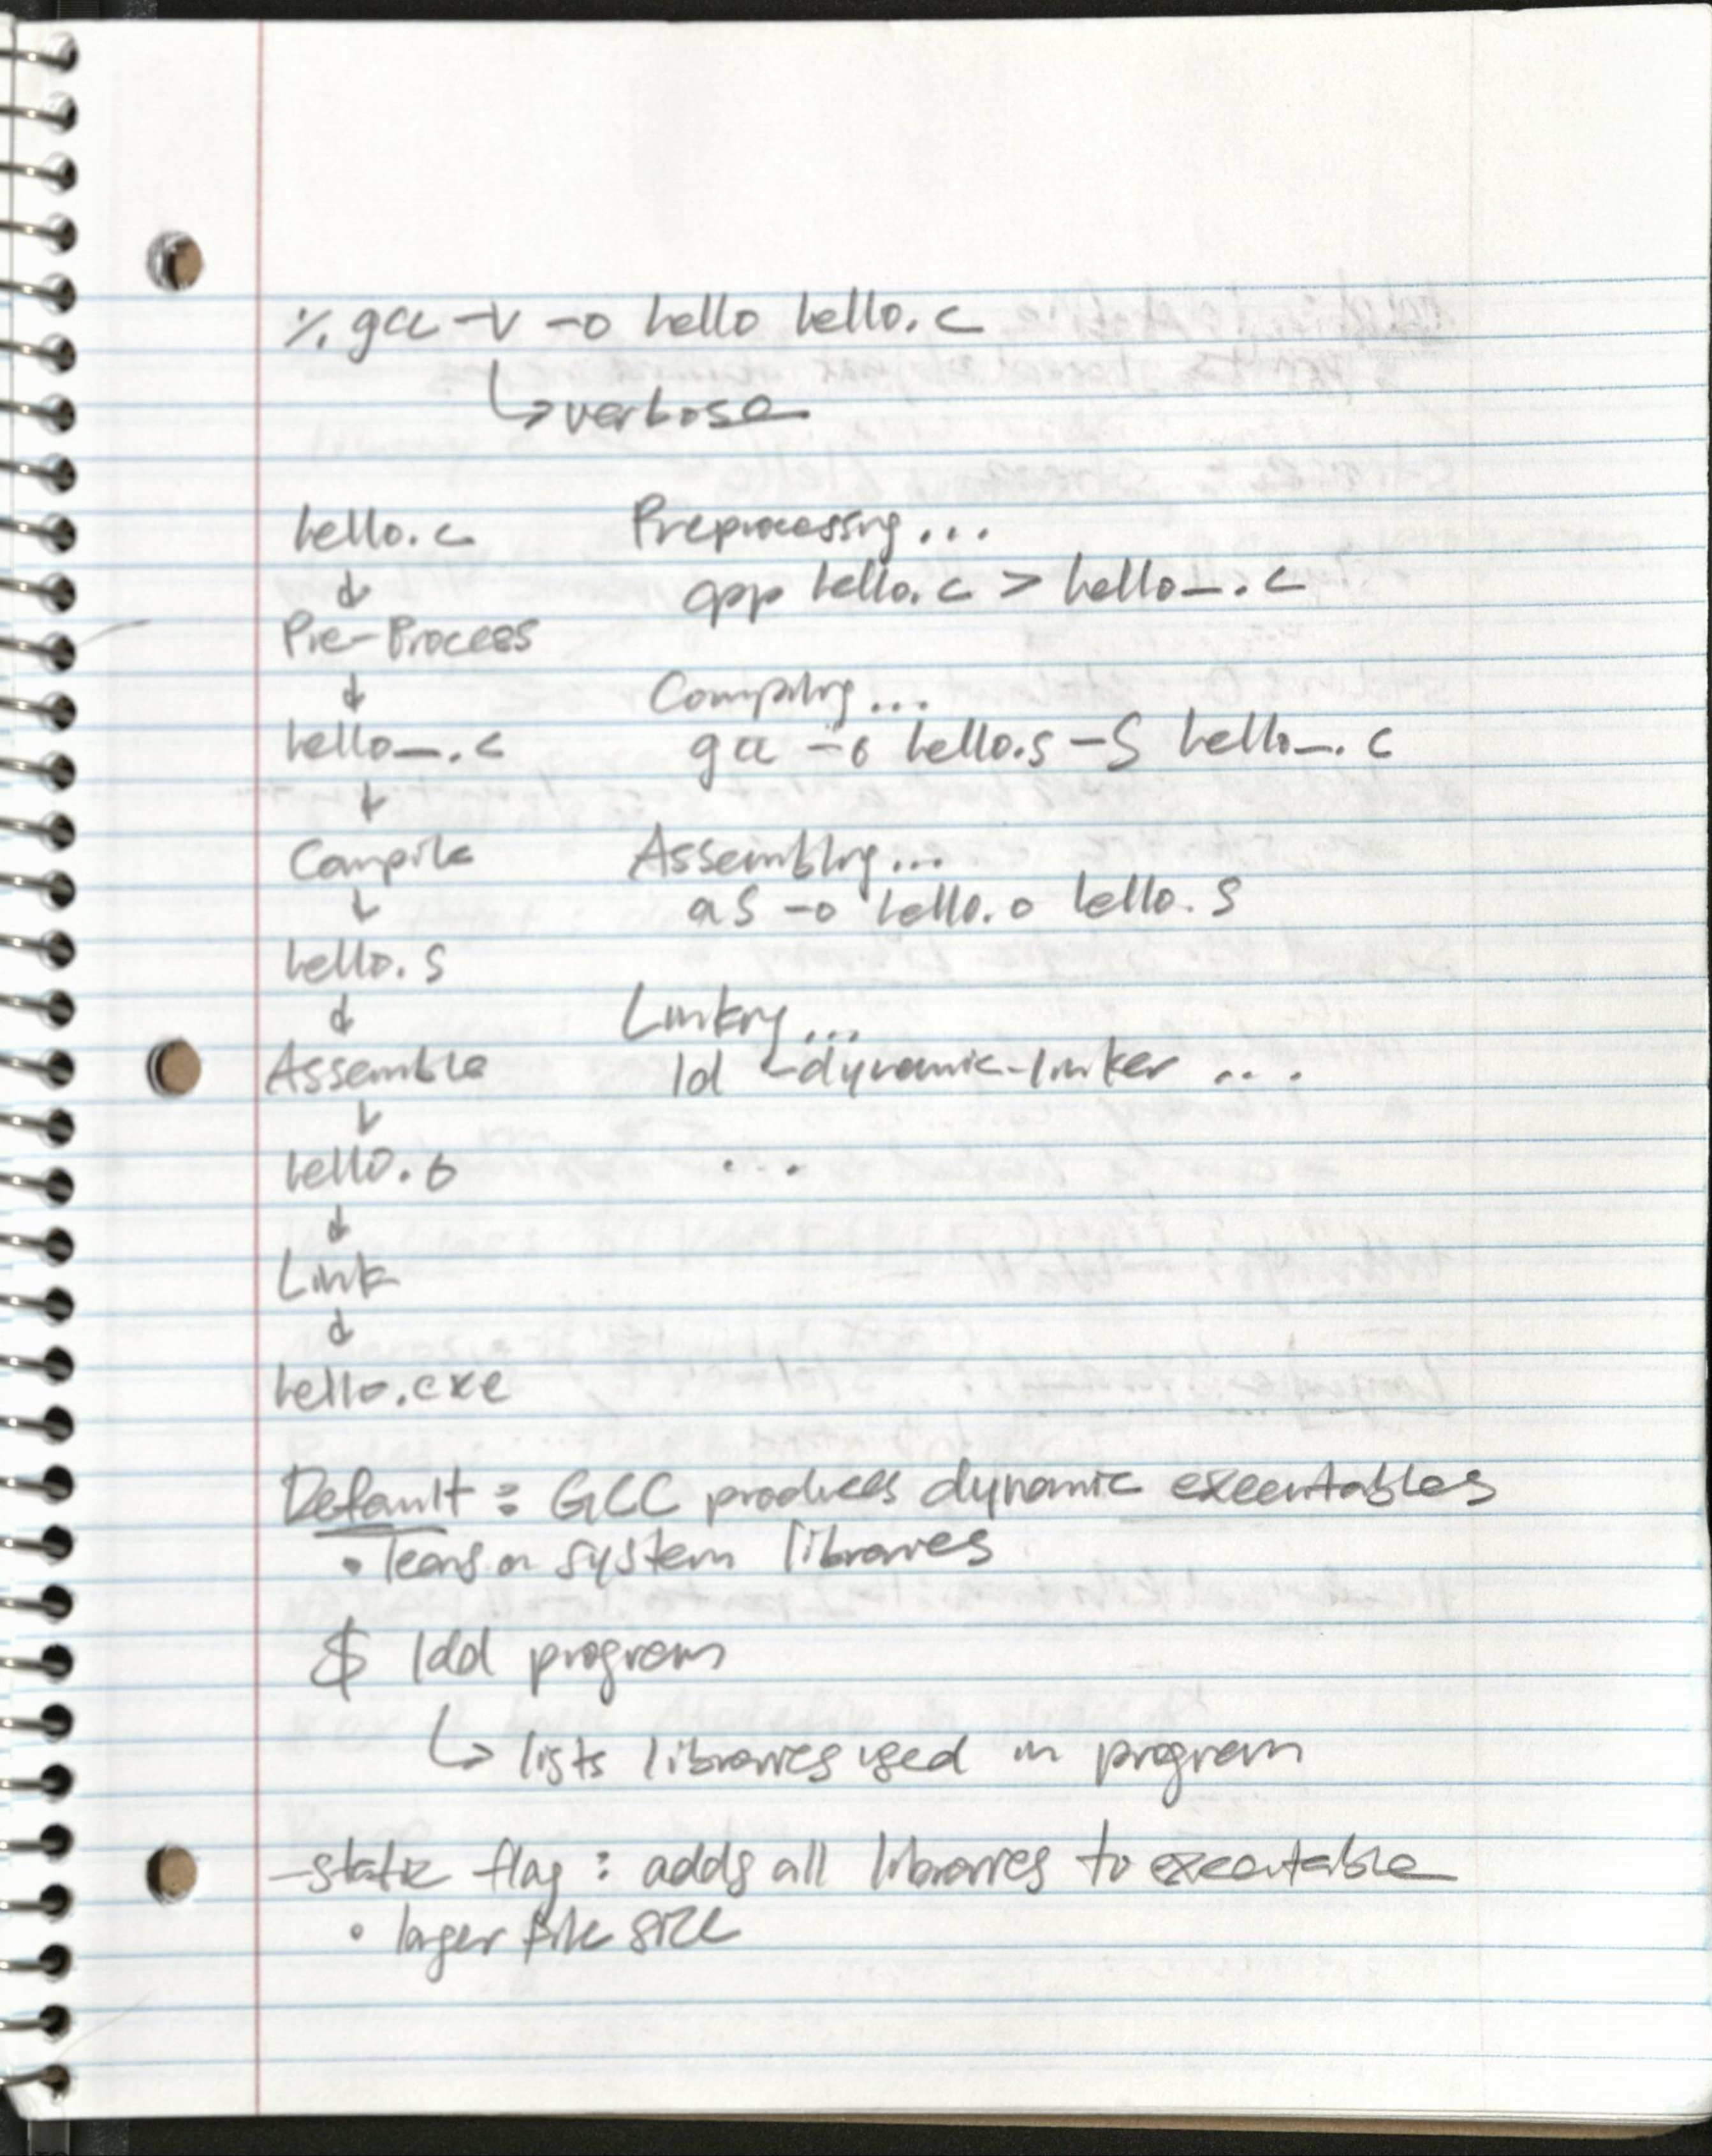 % gcc -v -o hello hello.c
↳ verbose
hello.c
↓
Pre-Process
↓
hello_.c
↓
Compile
↓
hello.s
↓
Assemble
↓
hello.o
↓
Link
↓
hello.exe
Preprocessing...
cpp hello.c > hello_.c
Compiling...
gcc -o hello.s -S hello_.c
Assembling...
as -o hello.o hello.s
Linking...
ld -dynamic-linker ...
...
Default: GCC produces dynamic executables
• leans on system libraries
$ ldd program
↳ lists libraries used in program
-static flag: adds all libraries to executable
• larger file size